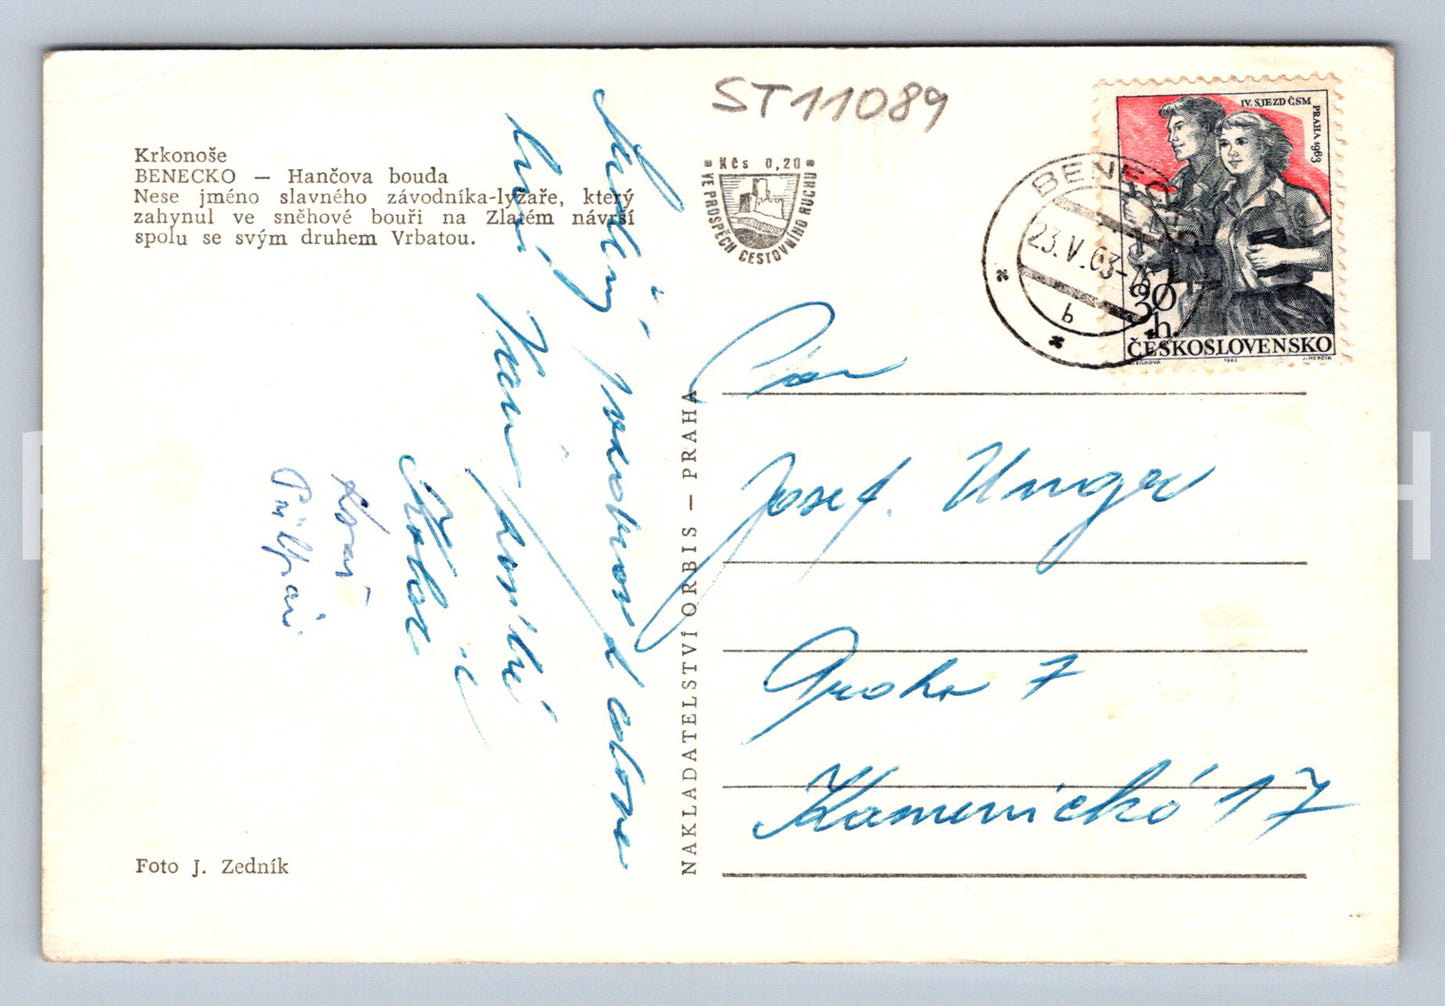 Krkonoše
BENECKO — Hančova bouda
Nese jméno slavného závodníka-lyžaře, který
zahynul ve sněhové bouři na Zlatém návrší
spolu se svým druhem Vrbatou.
ST11089
Kčs 0,20
VE PROSPĚCH CESTOVNÍHO RUCHU
BENECKO
23.V.63-
b
IV. SJEZD ČSM
PRAHA 1963
30
h
ČESKOSLOVENSKO
1963
J. HERČÍK
Srdečný pozdrav z
Vám posílá
Pan
Josef Unger
Praha 7
Kamenická 17
NAKLADATELSTVÍ ORBIS — PRAHA
Foto J. Zedník